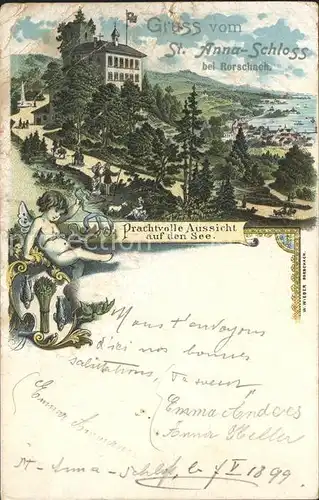 Gruss vom
St. Anna-Schloss
bei Rorschach.
Prachtvolle Aussicht
auf den See.
W. WIEBER RORSCHACH.
Nous t'envoyons
d'ici nos bonnes
salutations,
Emma Anders
Emma
Anna Keller
St-Anna-Schloss, le 7 V 1899